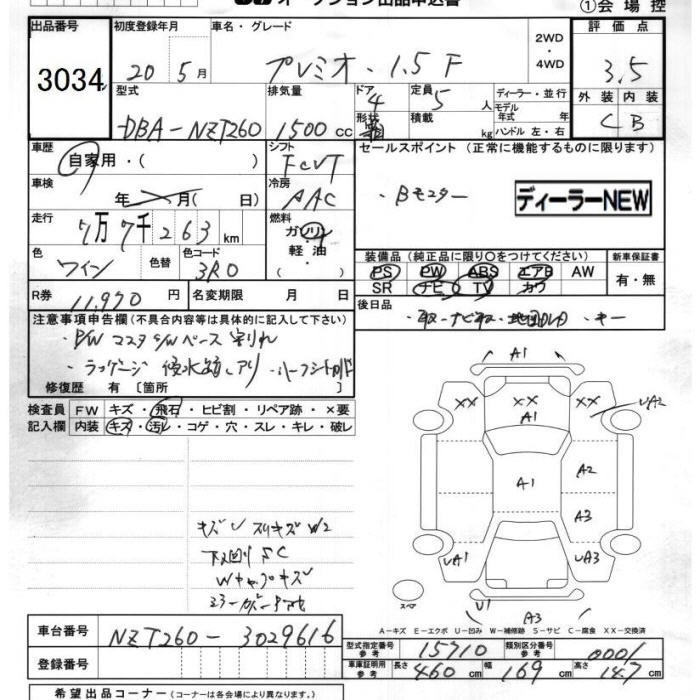 オークション出品申込書
①会場控
出品番号 初度登録年月 車名・グレード 2WD・4WD 評価点
3034 20年 5月 プレミオ・1.5F 3.5
型式 排気量 ドア 4 定員 5人 ディーラー・並行 外装 内装
DBA-NZT260 1500cc 形状 積載 kg モデル年式 年 ハンドル 左・右 C B
車歴 自家用・( ) シフト FCVT セールスポイント (正常に機能するものに限ります)
車検 年 月( 日) 冷房 AAC ・Bモニター ディーラーNEW
走行 7万7千263km 燃料 ガソリン・軽油・( )
色 ワイン 色替 色コード 3R0
装備品 (純正品に限り○をつけてください) 新車保証書
PS PW ABS エアB AW 有・無
SR ナビ TV カワ
R券 11,970円 名変期限 月 日
後日品
注意事項申告欄(不具合内容等は具体的に記入して下さい)
・P/W マスタS/Wベース 割れ
・ラッゲージ 侵水跡アリ
修復歴 有 [箇所
検査員記入欄 FW キズ・飛石・ヒビ割・リペア跡・×要
内装 キズ・汚レ・コゲ・穴・スレ・キレ・破レ
A1
XX XX XX UA2
A1
A1 A2
A3
UA1 UA3
U1 A3
スペア
キズU スリキズ W2
下回りSC
Wキャップキズ
A-キズ E-エクボ U-凹み W-補修跡 S-サビ C-腐食 XX-交換済
車台番号 NZT260-3029616
登録番号
型式指定番号 参考 15710 類別区分番号 参考 0001
車庫証明用 参考 長さ 460cm 幅 169cm 高さ 147cm
希望出品コーナー(コーナーは各会場により異なります。)